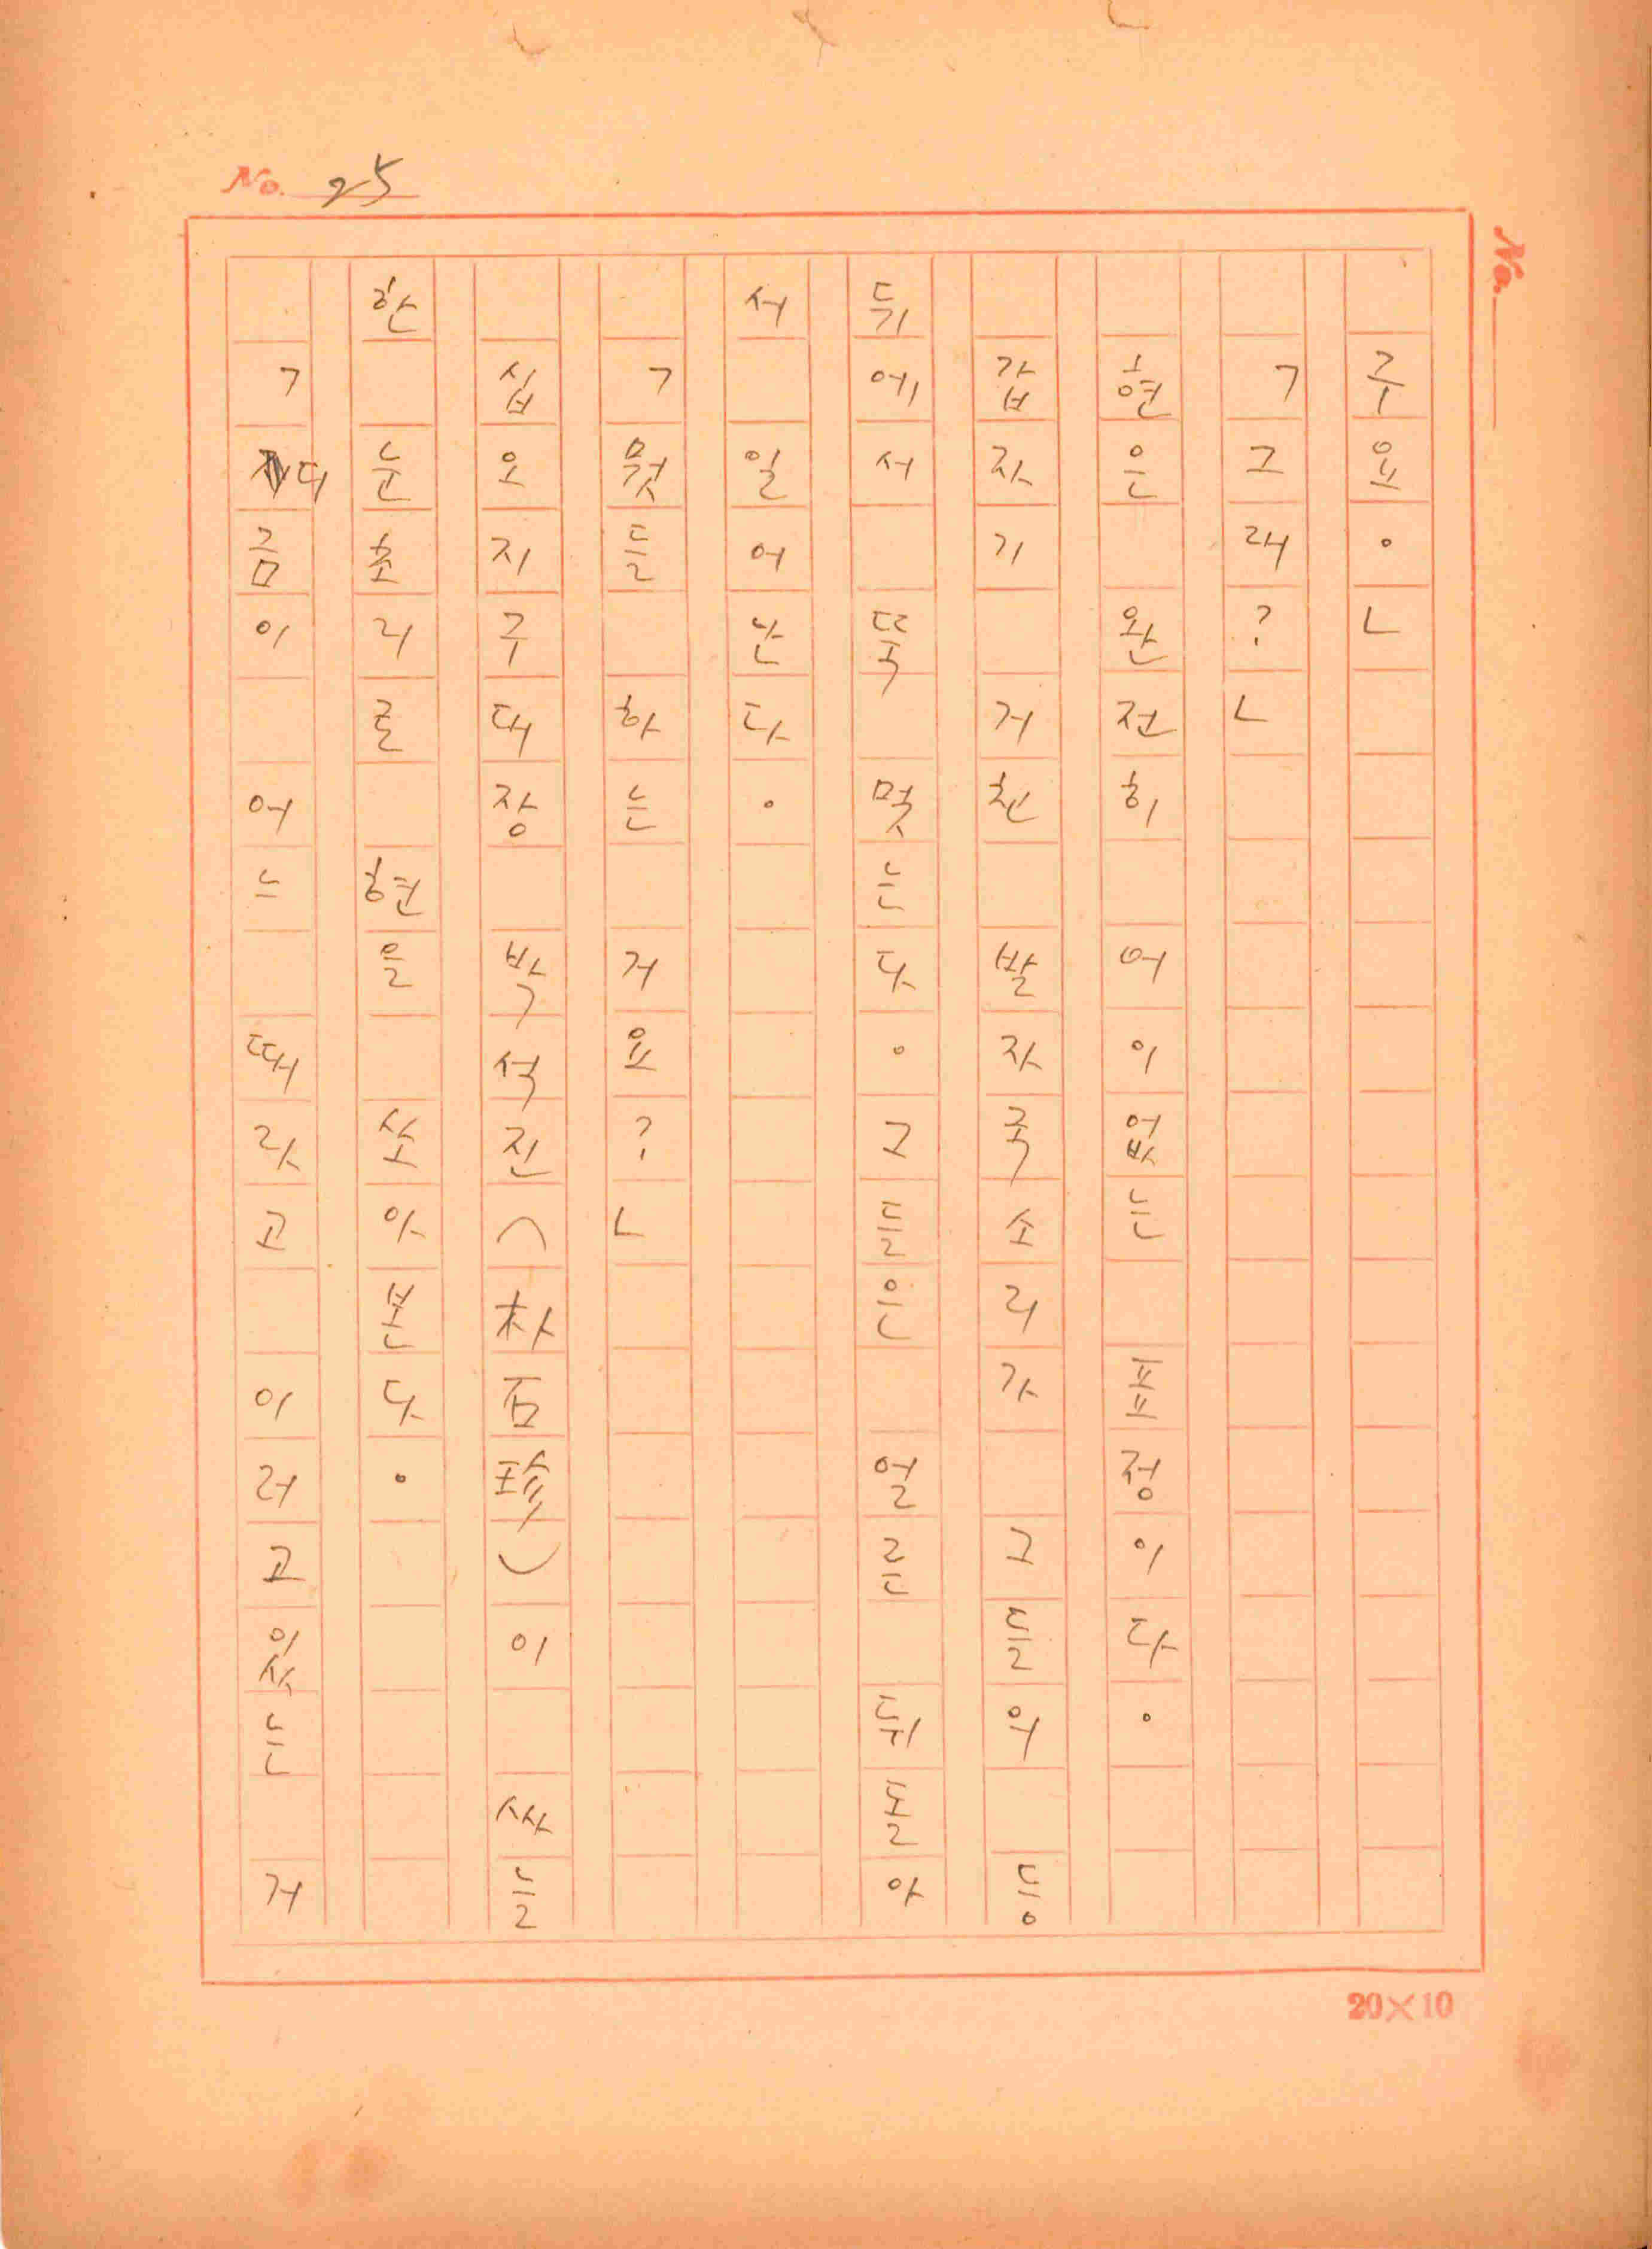 No. 25
No.
구요。」
「그래?」
현은 완전히 어이없는 표정이다。
갑자기 거친 발자국소리가 그들의 등
뒤에서 뚝 멎는다。그들은 얼른 뒤돌아
서 일어난다。
「뭣들 하는 거요?」
십오지구대장 박석진(朴石珍)이 싸늘
한 눈초리로 현을 쏘아본다。
「디금이 어느 때라고 이러고 있는 거
20×10